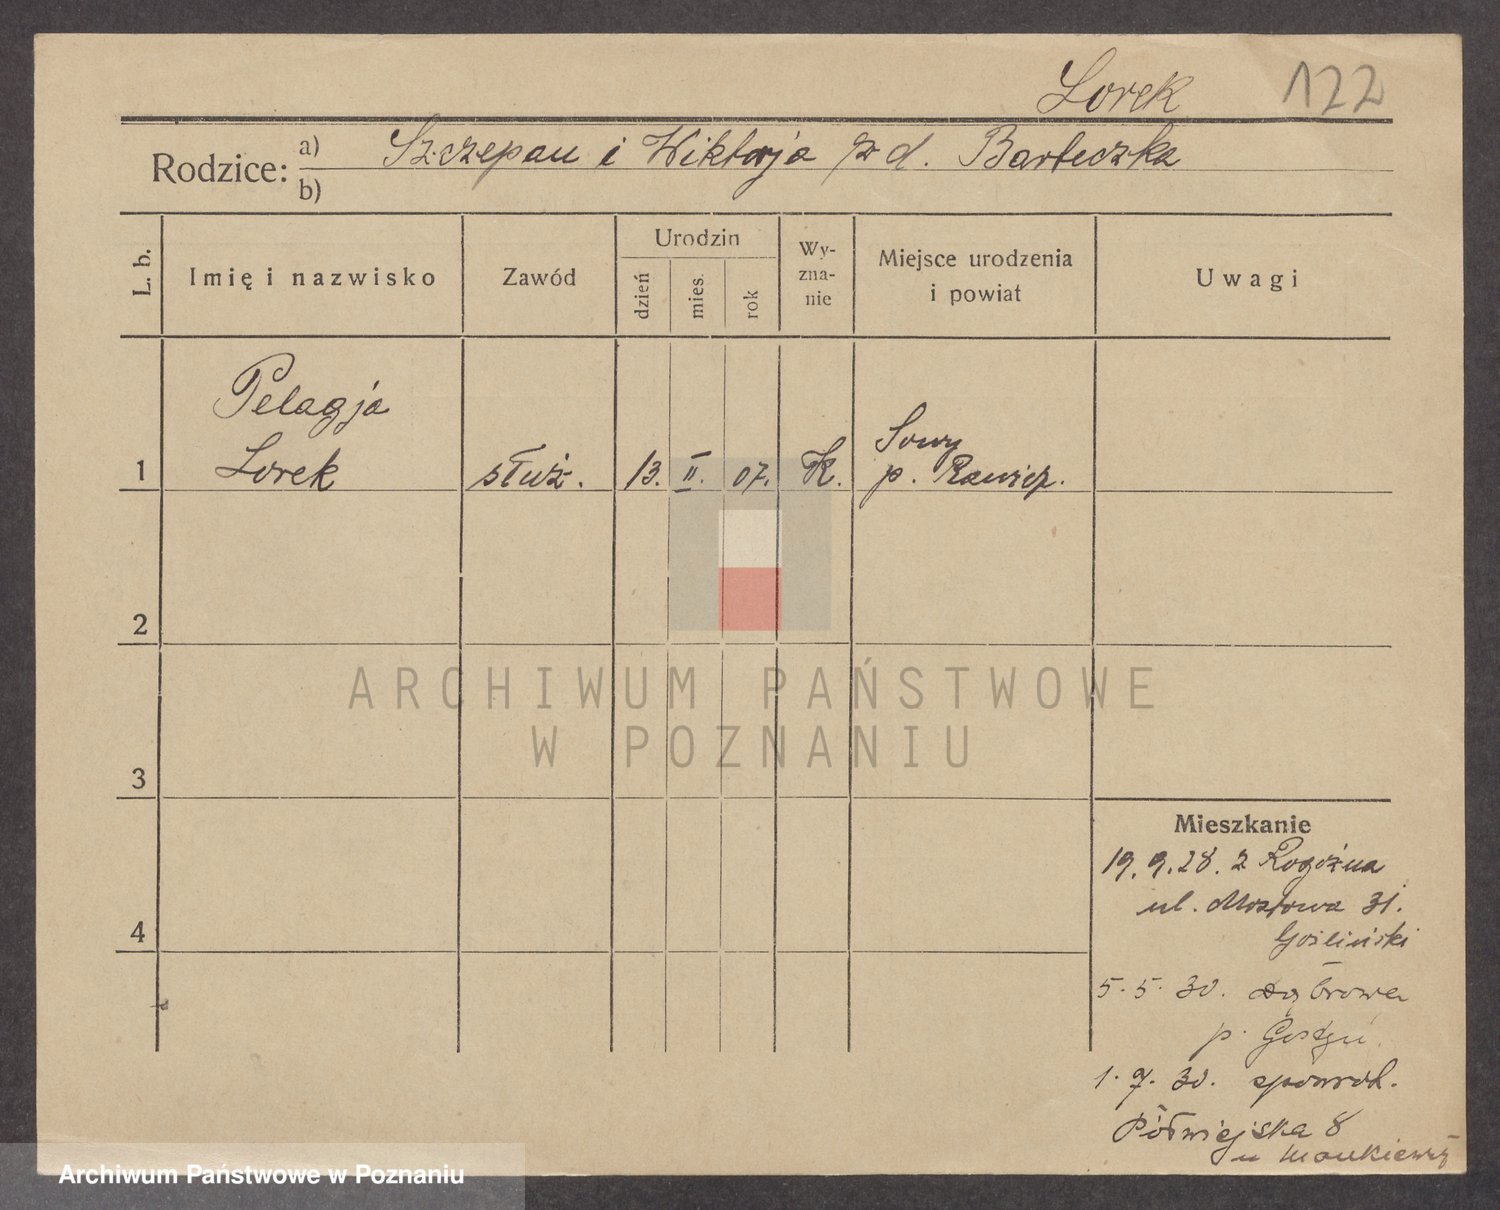 Lorek 122
Rodzice: a) Szczepan i Wiktorja z d. Barteczka
b)
L. b. Imię i nazwisko Zawód Urodzin dzień mies. rok Wy-zna-nie Miejsce urodzenia i powiat Uwagi
Pelagja Sowy
1 Lorek służ. 13. II. 07. K. p. Rawicz.
2
ARCHIWUM PAŃSTWOWE
W POZNANIU
3
Mieszkanie
19.9.28. z Rogoźna
ul. Mostowa 31.
Gośliński
4
5.5.30. Dąbrowa
p. Gostyń
1.7.30. spowrot.
Półwiejska 8
u
Archiwum Państwowe w Poznaniu